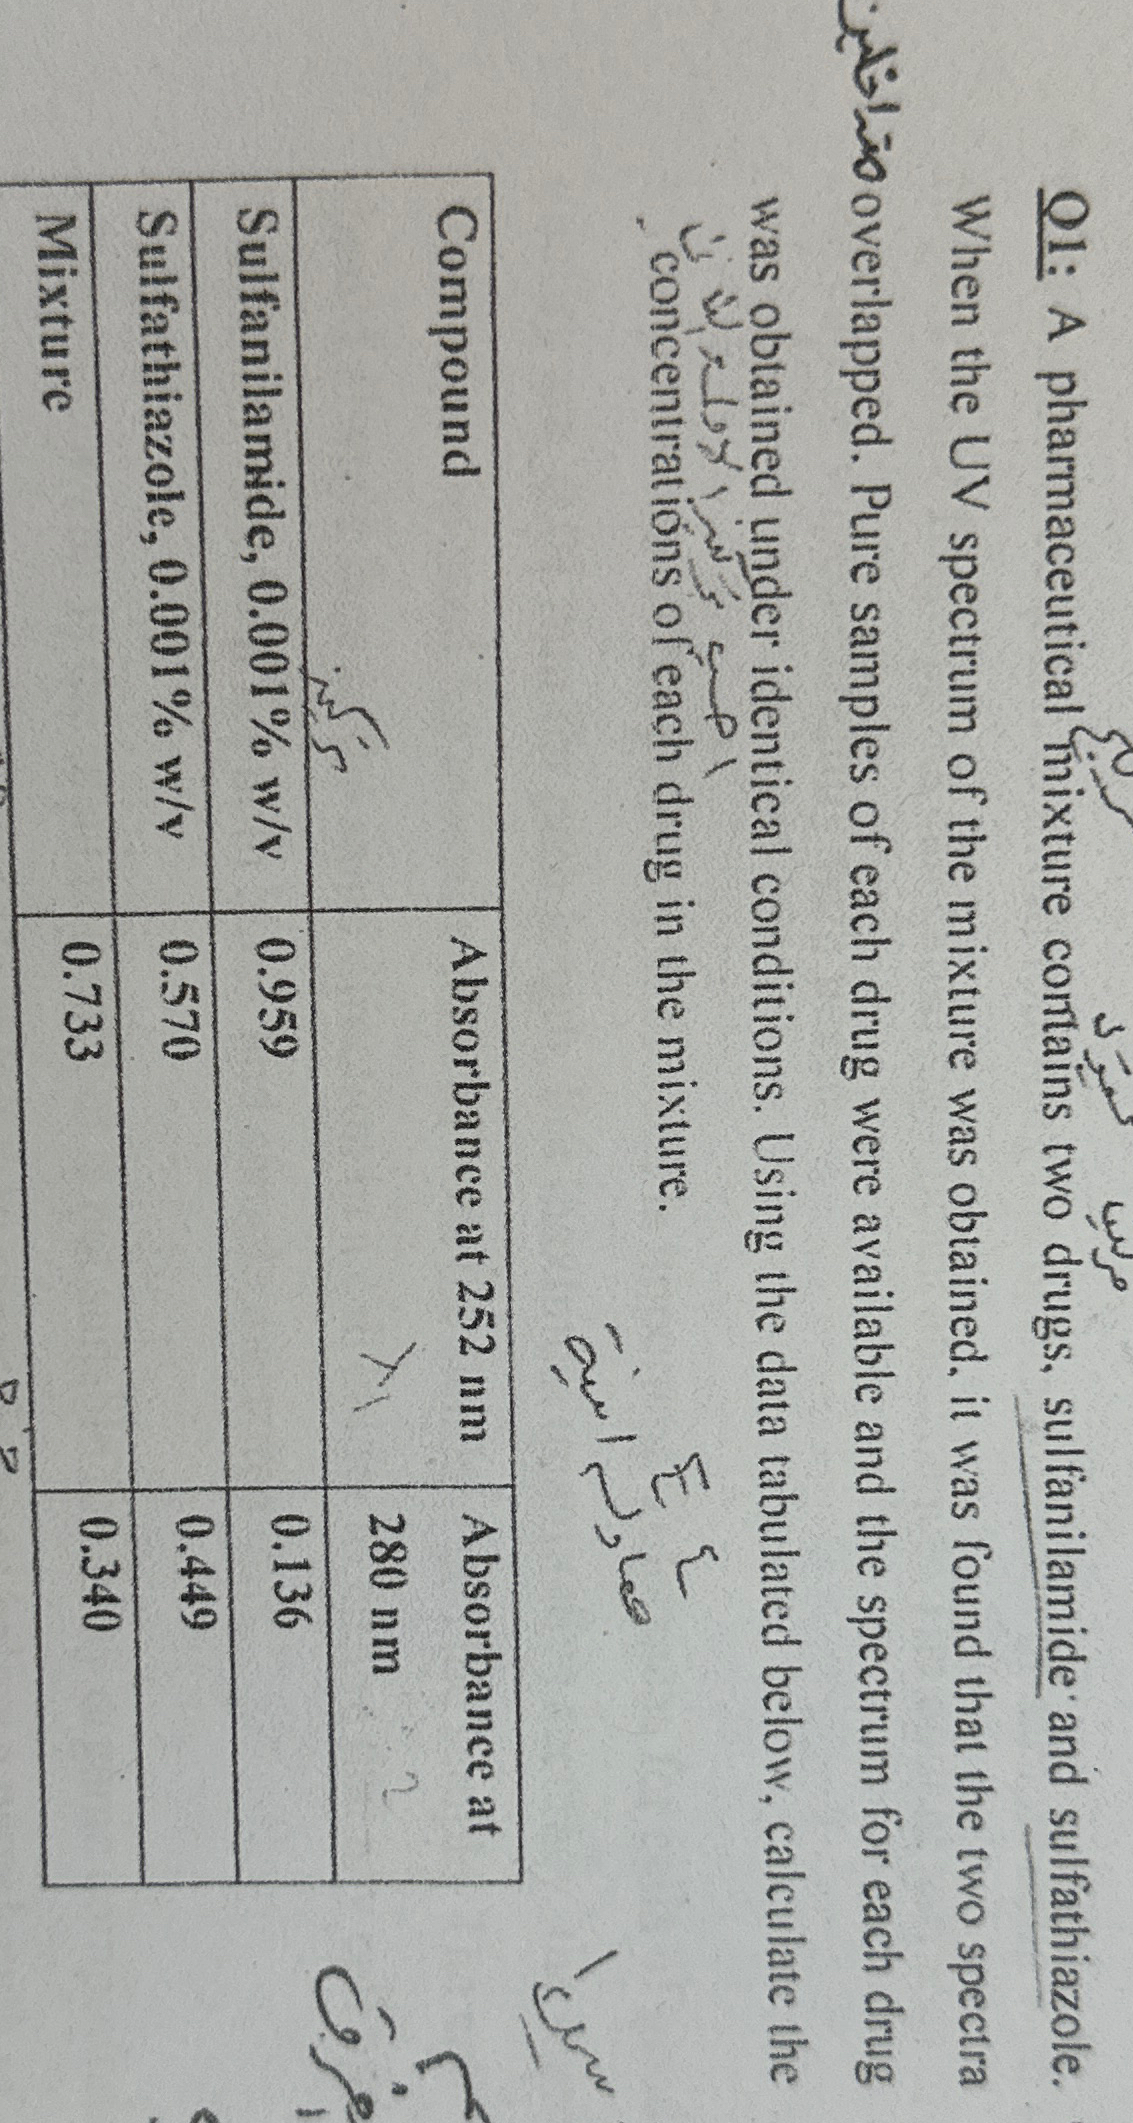 Q1: A pharmaceutical mixture contains two drugs, sulfanilamide and sulfathiazole.
When the UV spectrum of the mixture was obtained, it was found that the two spectra
متداخلين overlapped. Pure samples of each drug were available and the spectrum for each drug
was obtained under identical conditions. Using the data tabulated below, calculate the
concentrations of each drug in the mixture.
Compound Absorbance at 252 nm Absorbance at
280 nm
تركيز λ1 2
Sulfanilamide, 0.001% w/v 0.959 0.136
Sulfathiazole, 0.001% w/v 0.570 0.449
Mixture 0.733 0.340